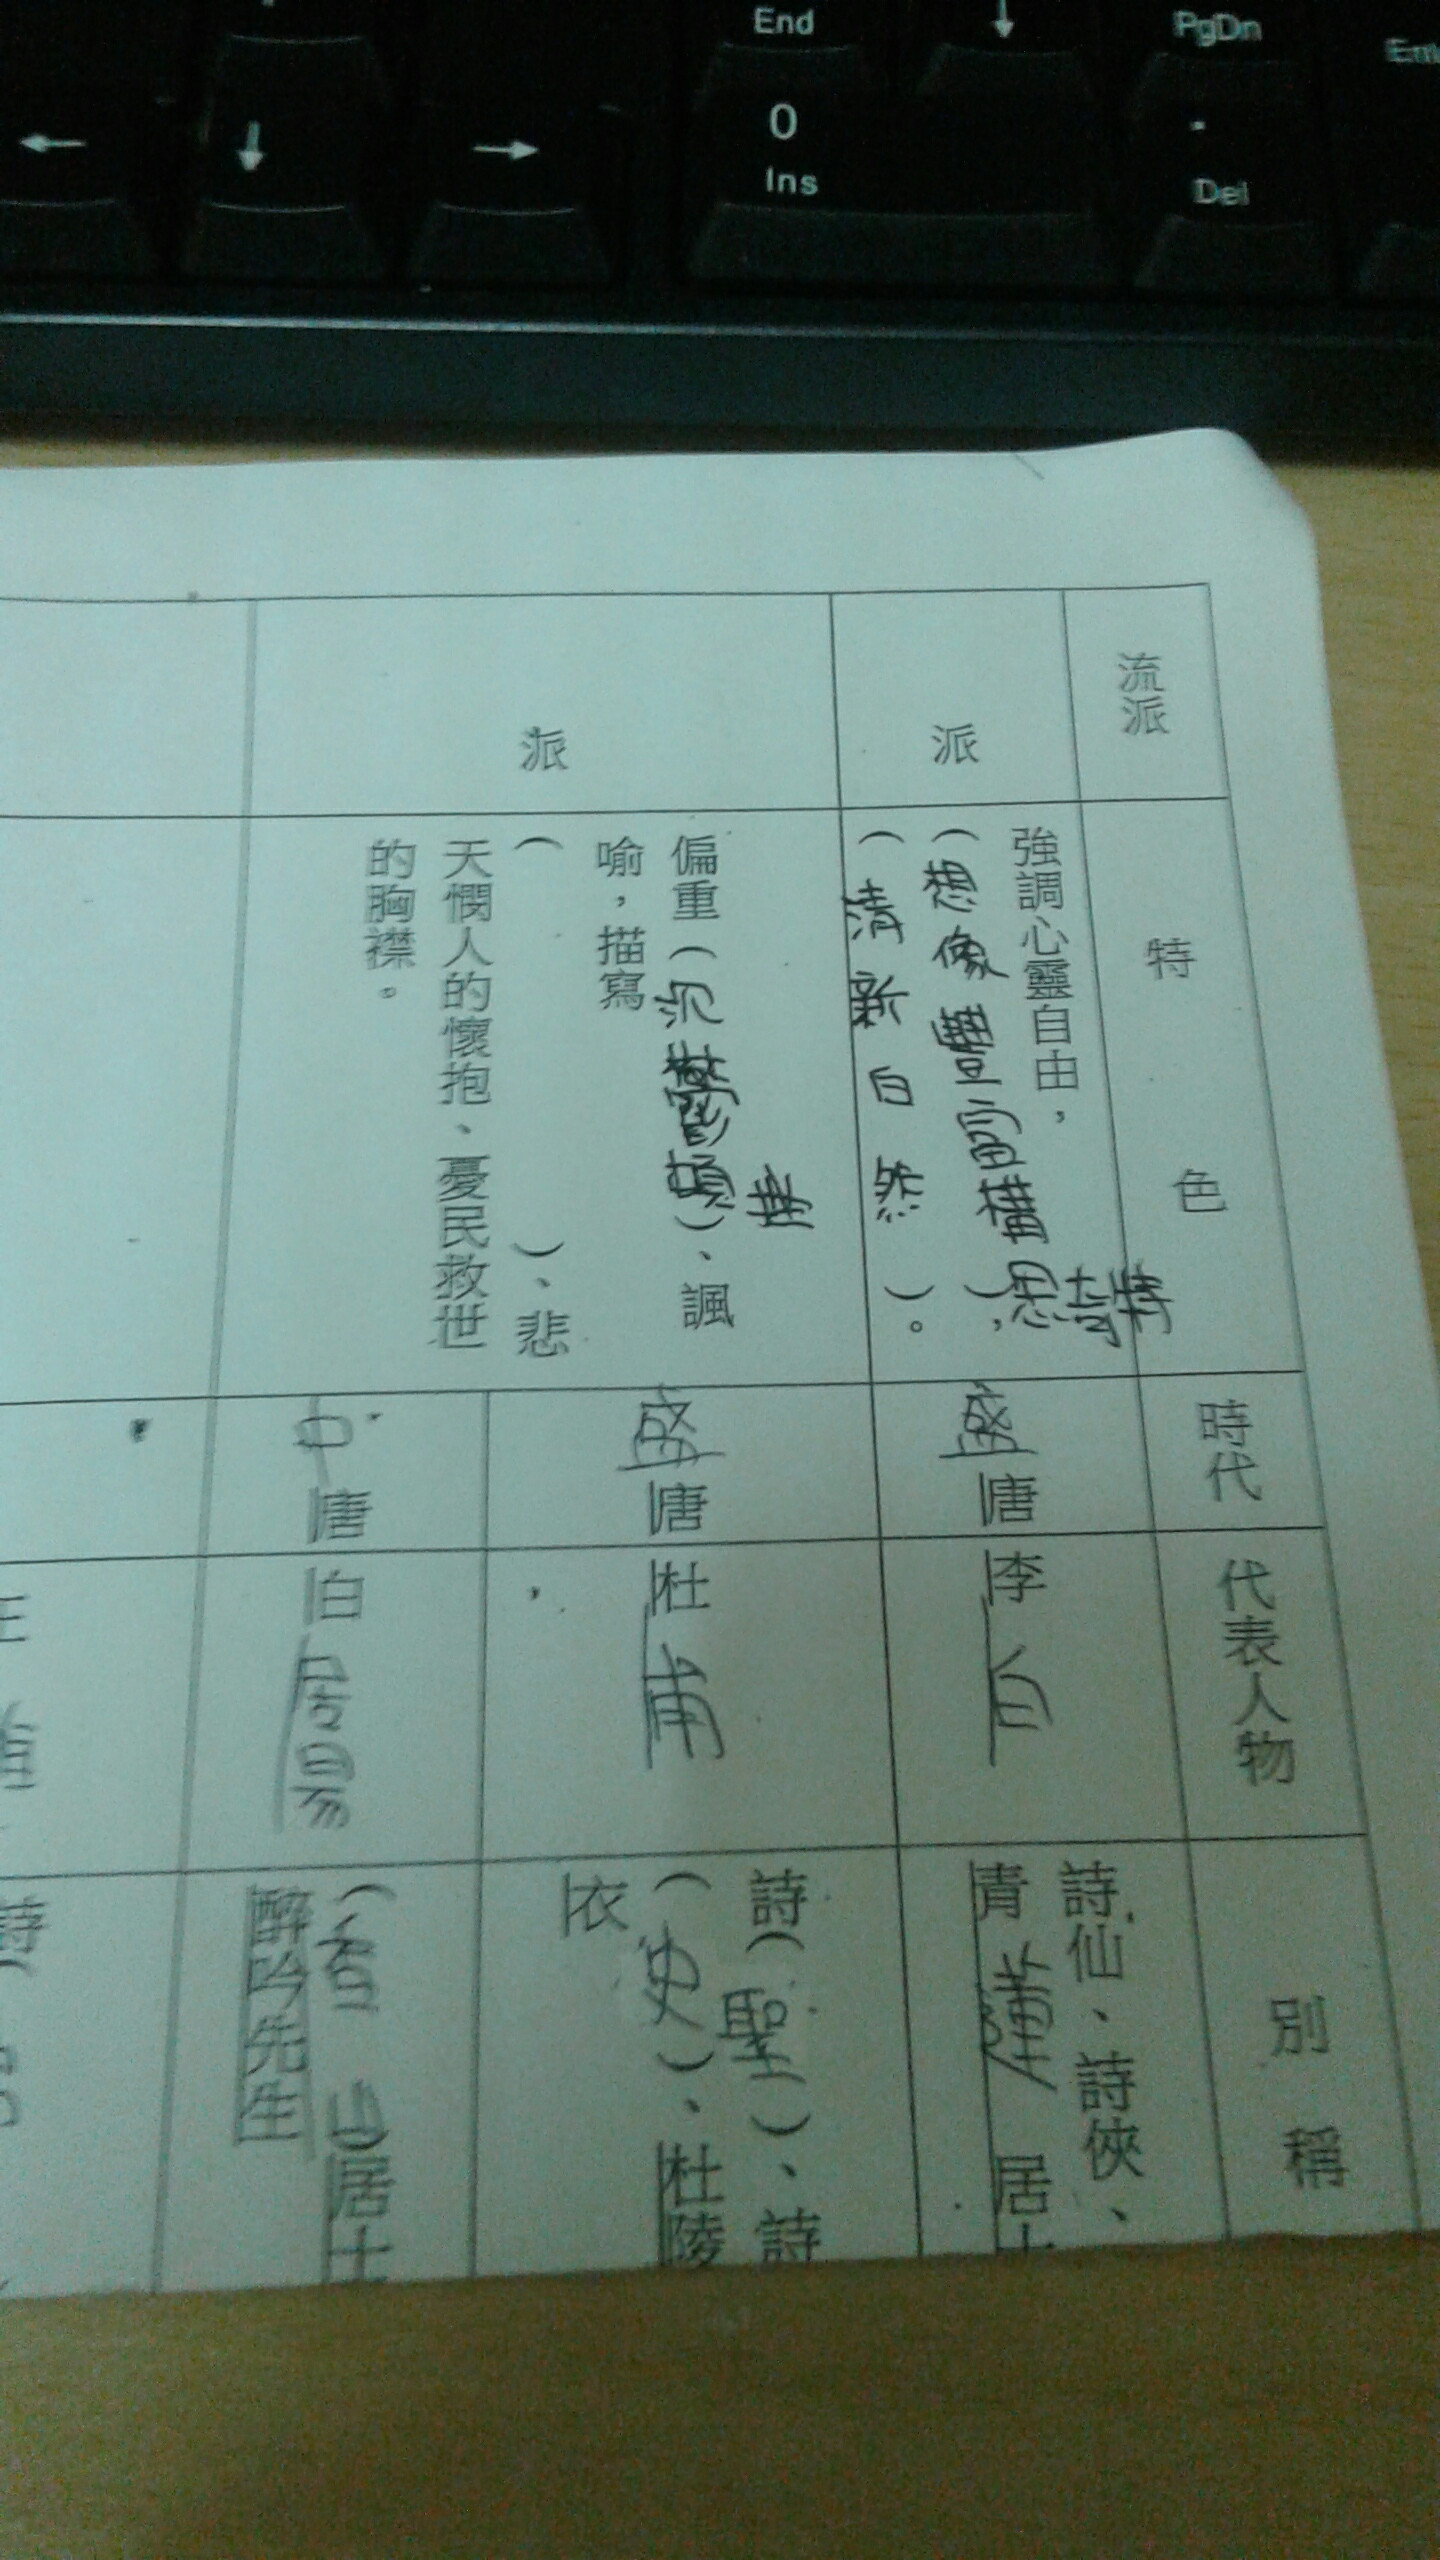 End
↓
PgDn
←
↓
→
0
Ins
.
Del
流派
特色
時代
代表人物
別稱
派
強調心靈自由，
（想像豐富構思奇特），
（清新自然）。
盛唐
李白
詩仙、詩俠、
青蓮居士
派
偏重（沉鬱頓挫）、諷
喻，描寫
（　　　）、悲
天憫人的懷抱、憂民救世
的胸襟。
盛唐
杜甫
詩（聖）、詩
（史）、杜陵
衣
中唐
白居易
（香山居士
醉吟先生
詩